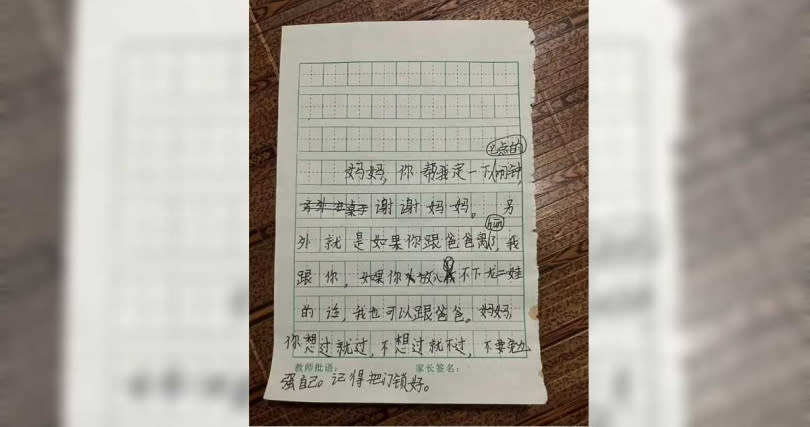 七点的
妈妈，你帮我定一下闹钟，
另外 谢谢妈妈。另
hun
外就是如果你跟爸爸离了我
跟你，如果你放心不下二娃
的话，我也可以跟爸爸。妈妈，
你想过就过，不想过就不过，不要勉
教师批语： 家长签名：
强自己。记得把门锁好。